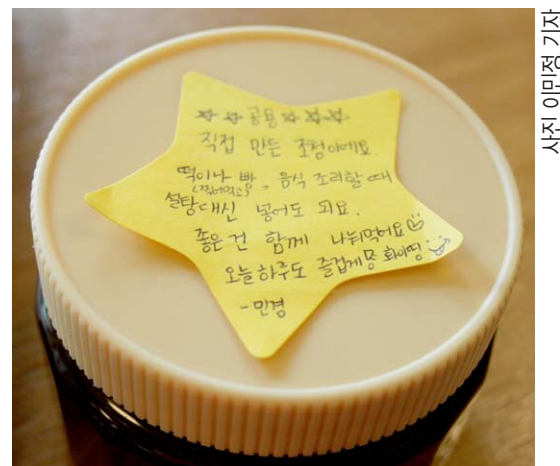 ☆☆공용☆☆☆
직접 만든 조청이에요.
떡이나 빵(찍어먹고), 음식 조리할 때
설탕대신 넣어도 되요.
좋은 건 함께 나눠먹어요
오늘 하루도 즐겁게용 화이띵
-민경
사진 이민정 기자